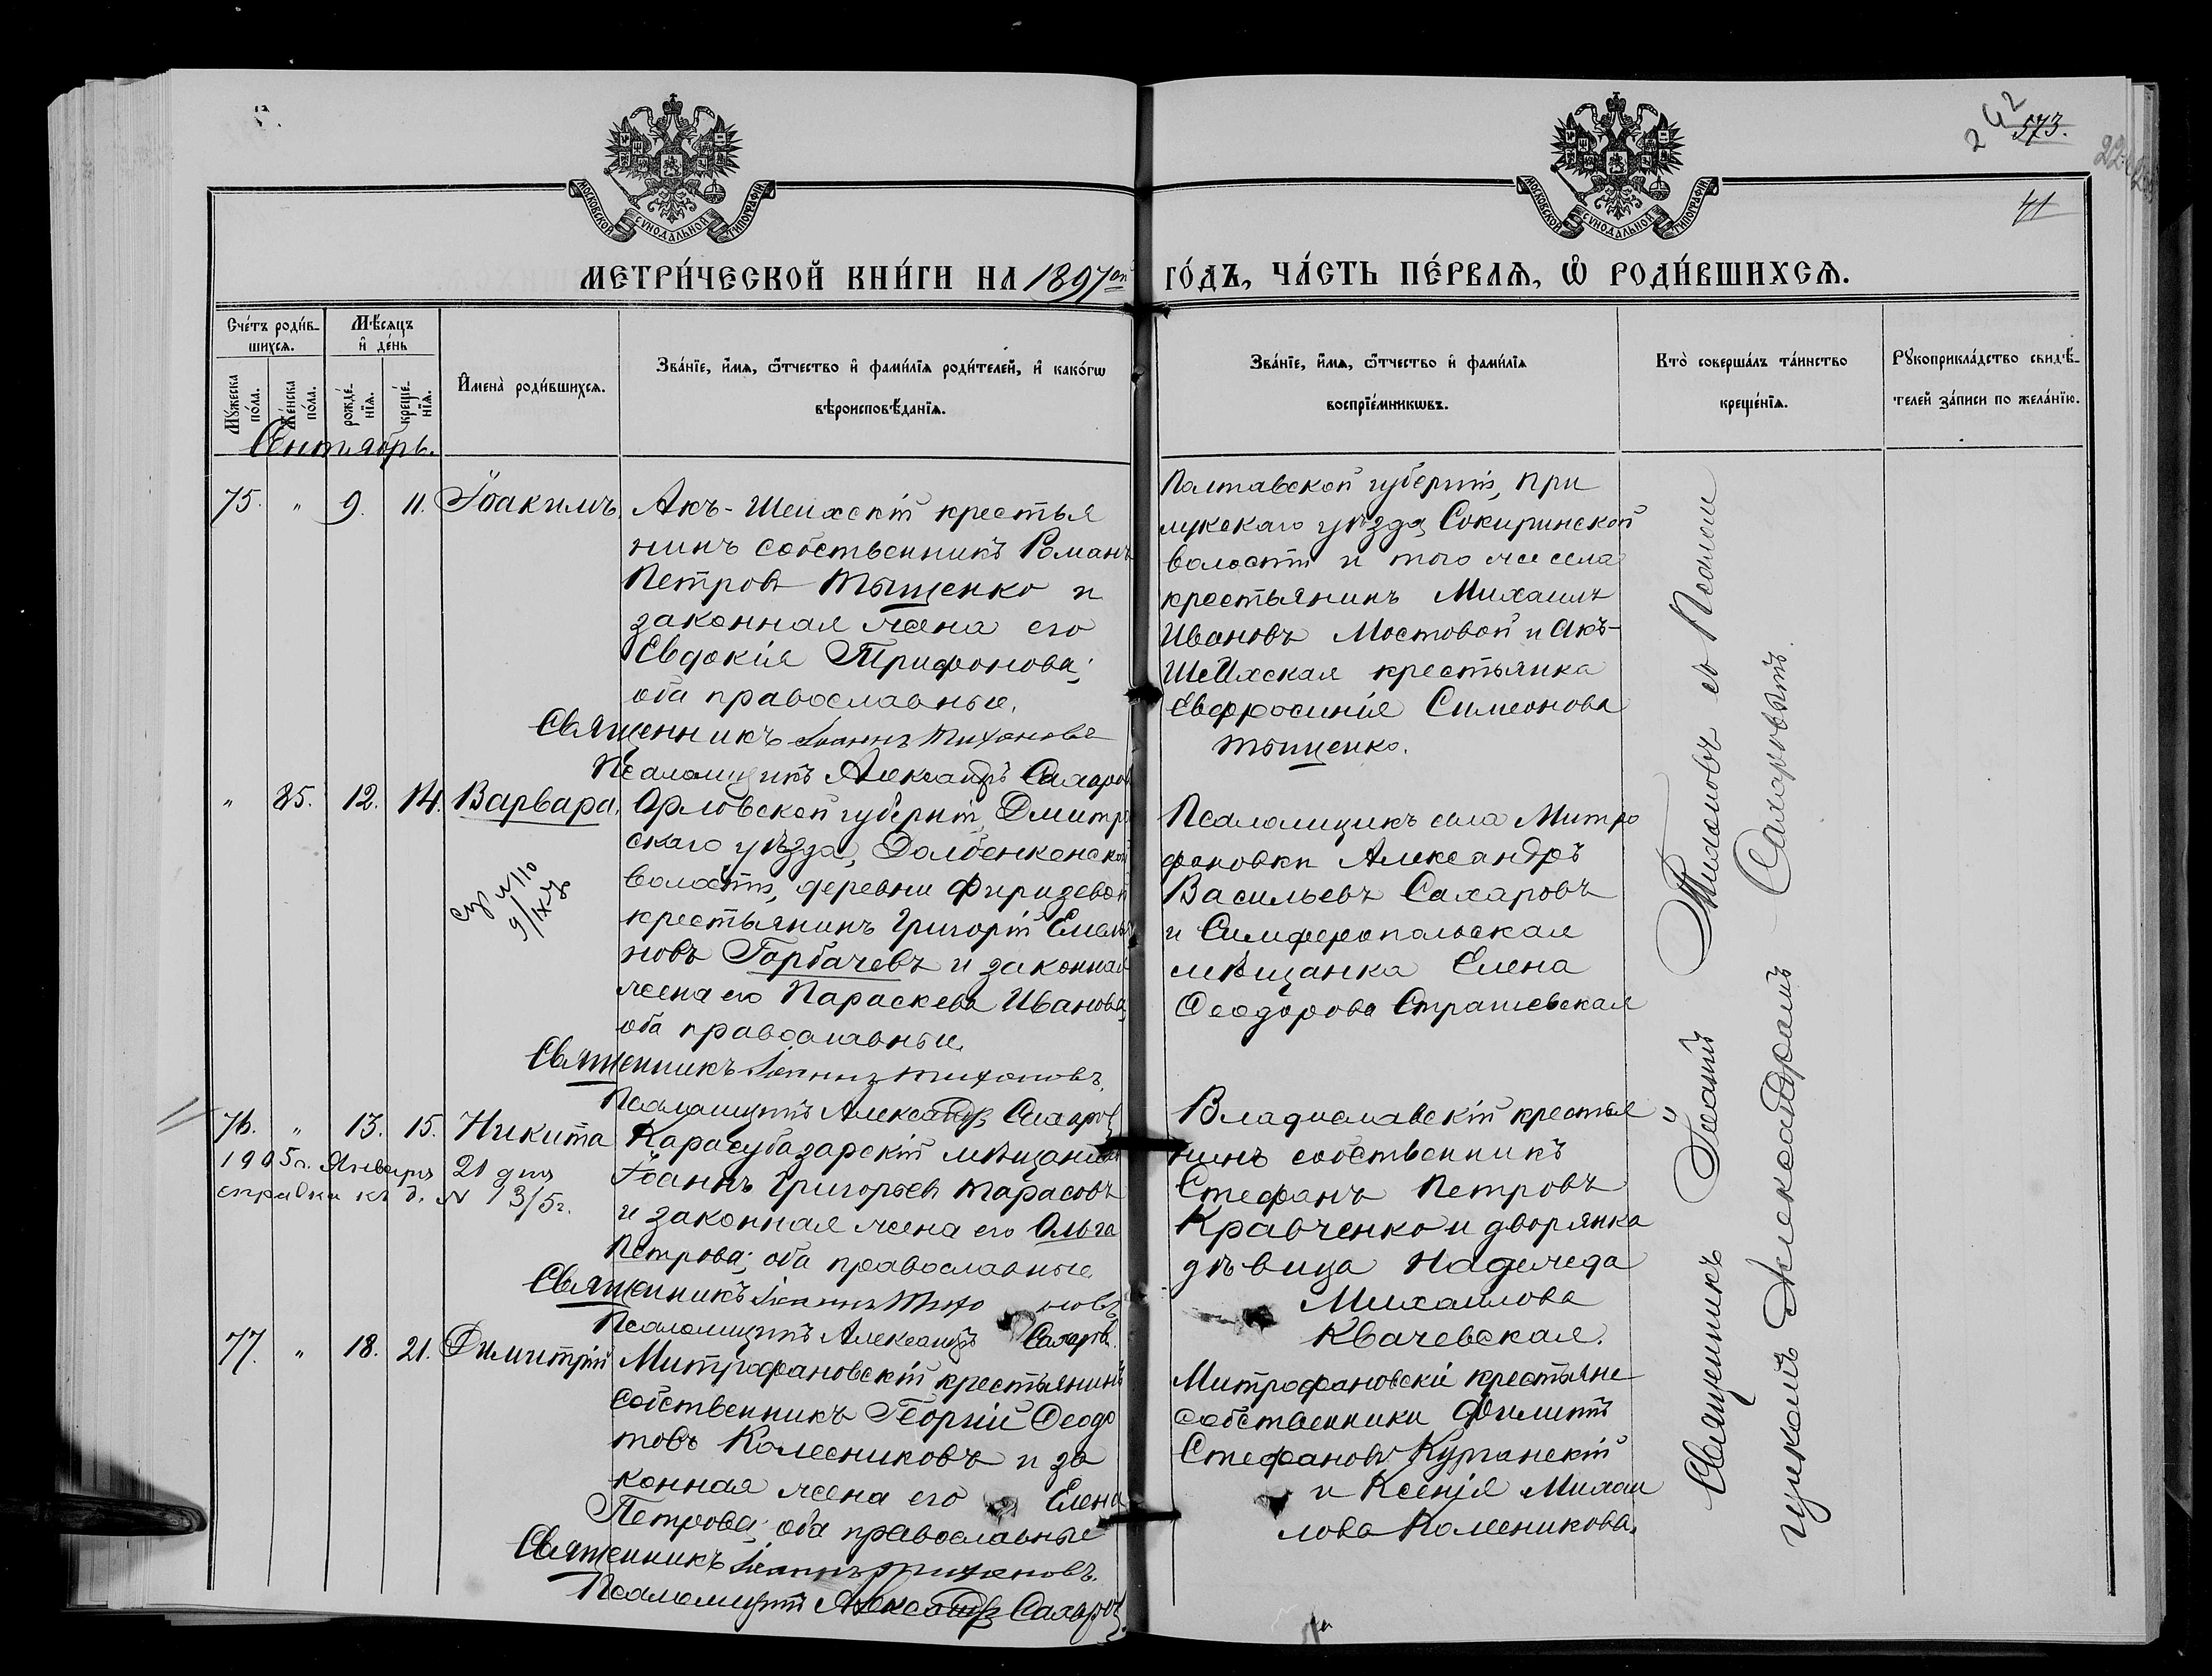 573.
42
2
41
МОСКОВСКОЙ СѴНОДАЛЬНОЙ ТИПОГРАФІИ
МОСКОВСКОЙ СѴНОДАЛЬНОЙ ТИПОГРАФІИ
МЕТРИ́ЧЕСКОЙ КНИ́ГИ НА 1897ой ГО́ДЪ, ЧА́СТЬ ПЕ́РВАѦ, Ѡ҆ РОДИ́ВШИХСѦ.
Сче́тъ роди́в-
шихсѧ.
Мѣ́сѧцъ
и҆ де́нь
Мꙋ́жеска
по́ла.
Же́нска
по́ла.
рожде́-
нїѧ.
креще́-
нїѧ.
И҆мена̀ роди́вшихсѧ.
Зва́нїе, и҆́мѧ, ѻ҆́тчество и҆ фами́лїѧ роди́телей, и҆ како́гѡ
вѣроисповѣ́данїѧ.
Зва́нїе, и҆́мѧ, ѻ҆́тчество и҆ фами́лїѧ
воспрїе́мникѡвъ.
Кто̀ соверша́лъ та́инство
креще́нїѧ.
Рꙋкоприкла́дство свидѣ́-
телей за́писи по жела́нїю.
Сентябрь.
75. " 9. 11. Іоакимъ.
Акъ-Шеихскій крестья
нинъ собственникъ Романъ
Петровъ Тыщенко и
законная жена его
Евдокія Трифонова;
оба православные.
Священникъ Іоаннъ Тихоновъ
Псаломщикъ Александръ Сахаровъ
Полтавской губерніи, При
лукскаго уѣзда, Сокиринской
волости и того же села
крестьянинъ Михаилъ
Ивановъ Мостовой и Акъ-
Шеихская крестьянка
Евфросинія Симеонова
Тыщенко.
" 25. 12. 14. Варвара.
Орловской губерніи, Дмитро
скаго уѣзда, Долбенкинской
волости, деревни Фиризевой
крестьянинъ Григорій Емелья
новъ Горбачевъ и законная
жена его Параскева Иванова;
оба православные.
Священникъ Іоаннъ Тихоновъ.
Псаломщикъ Александръ Сахаровъ
Псаломщикъ села Митро
фановки Александръ
Васильевъ Сахаровъ
и Симферопольская
мѣщанка Елена
Ѳеодорова Страшевская
76. " 13. 15. Никита
1905 г. Января 21 дня
справка къ д. № 13/5 г.
Карасубазарскій мѣщанинъ
Іоаннъ Григорьевъ Тарасовъ
и законная жена его Ольга
Петрова; оба православные
Священникъ Іоаннъ Тихоновъ
Псаломщикъ Александръ Сахаровъ.
Владиславскій крестья
нинъ собственникъ
Стефанъ Петровъ
Кравченко и дворянка
дѣвица Надежда
Михаилова
Квачевская.
77. " 18. 21. Димитрій
Митрофановскій крестьянинъ
собственникъ Георгій Ѳеодо
товъ Колесниковъ и за
конная жена его Елена
Петрова; оба православные
Священникъ Іоаннъ Тихоновъ.
Псаломщикъ Александръ Сахаровъ
Митрофановскіе крестьяне
собственники Филиппъ
Стефановъ Курганскій
и Ксенія Михаи
лова Колесникова.
Священникъ Іоаннъ Тихоновъ съ Псалом
щикомъ Александромъ Сахаровымъ.